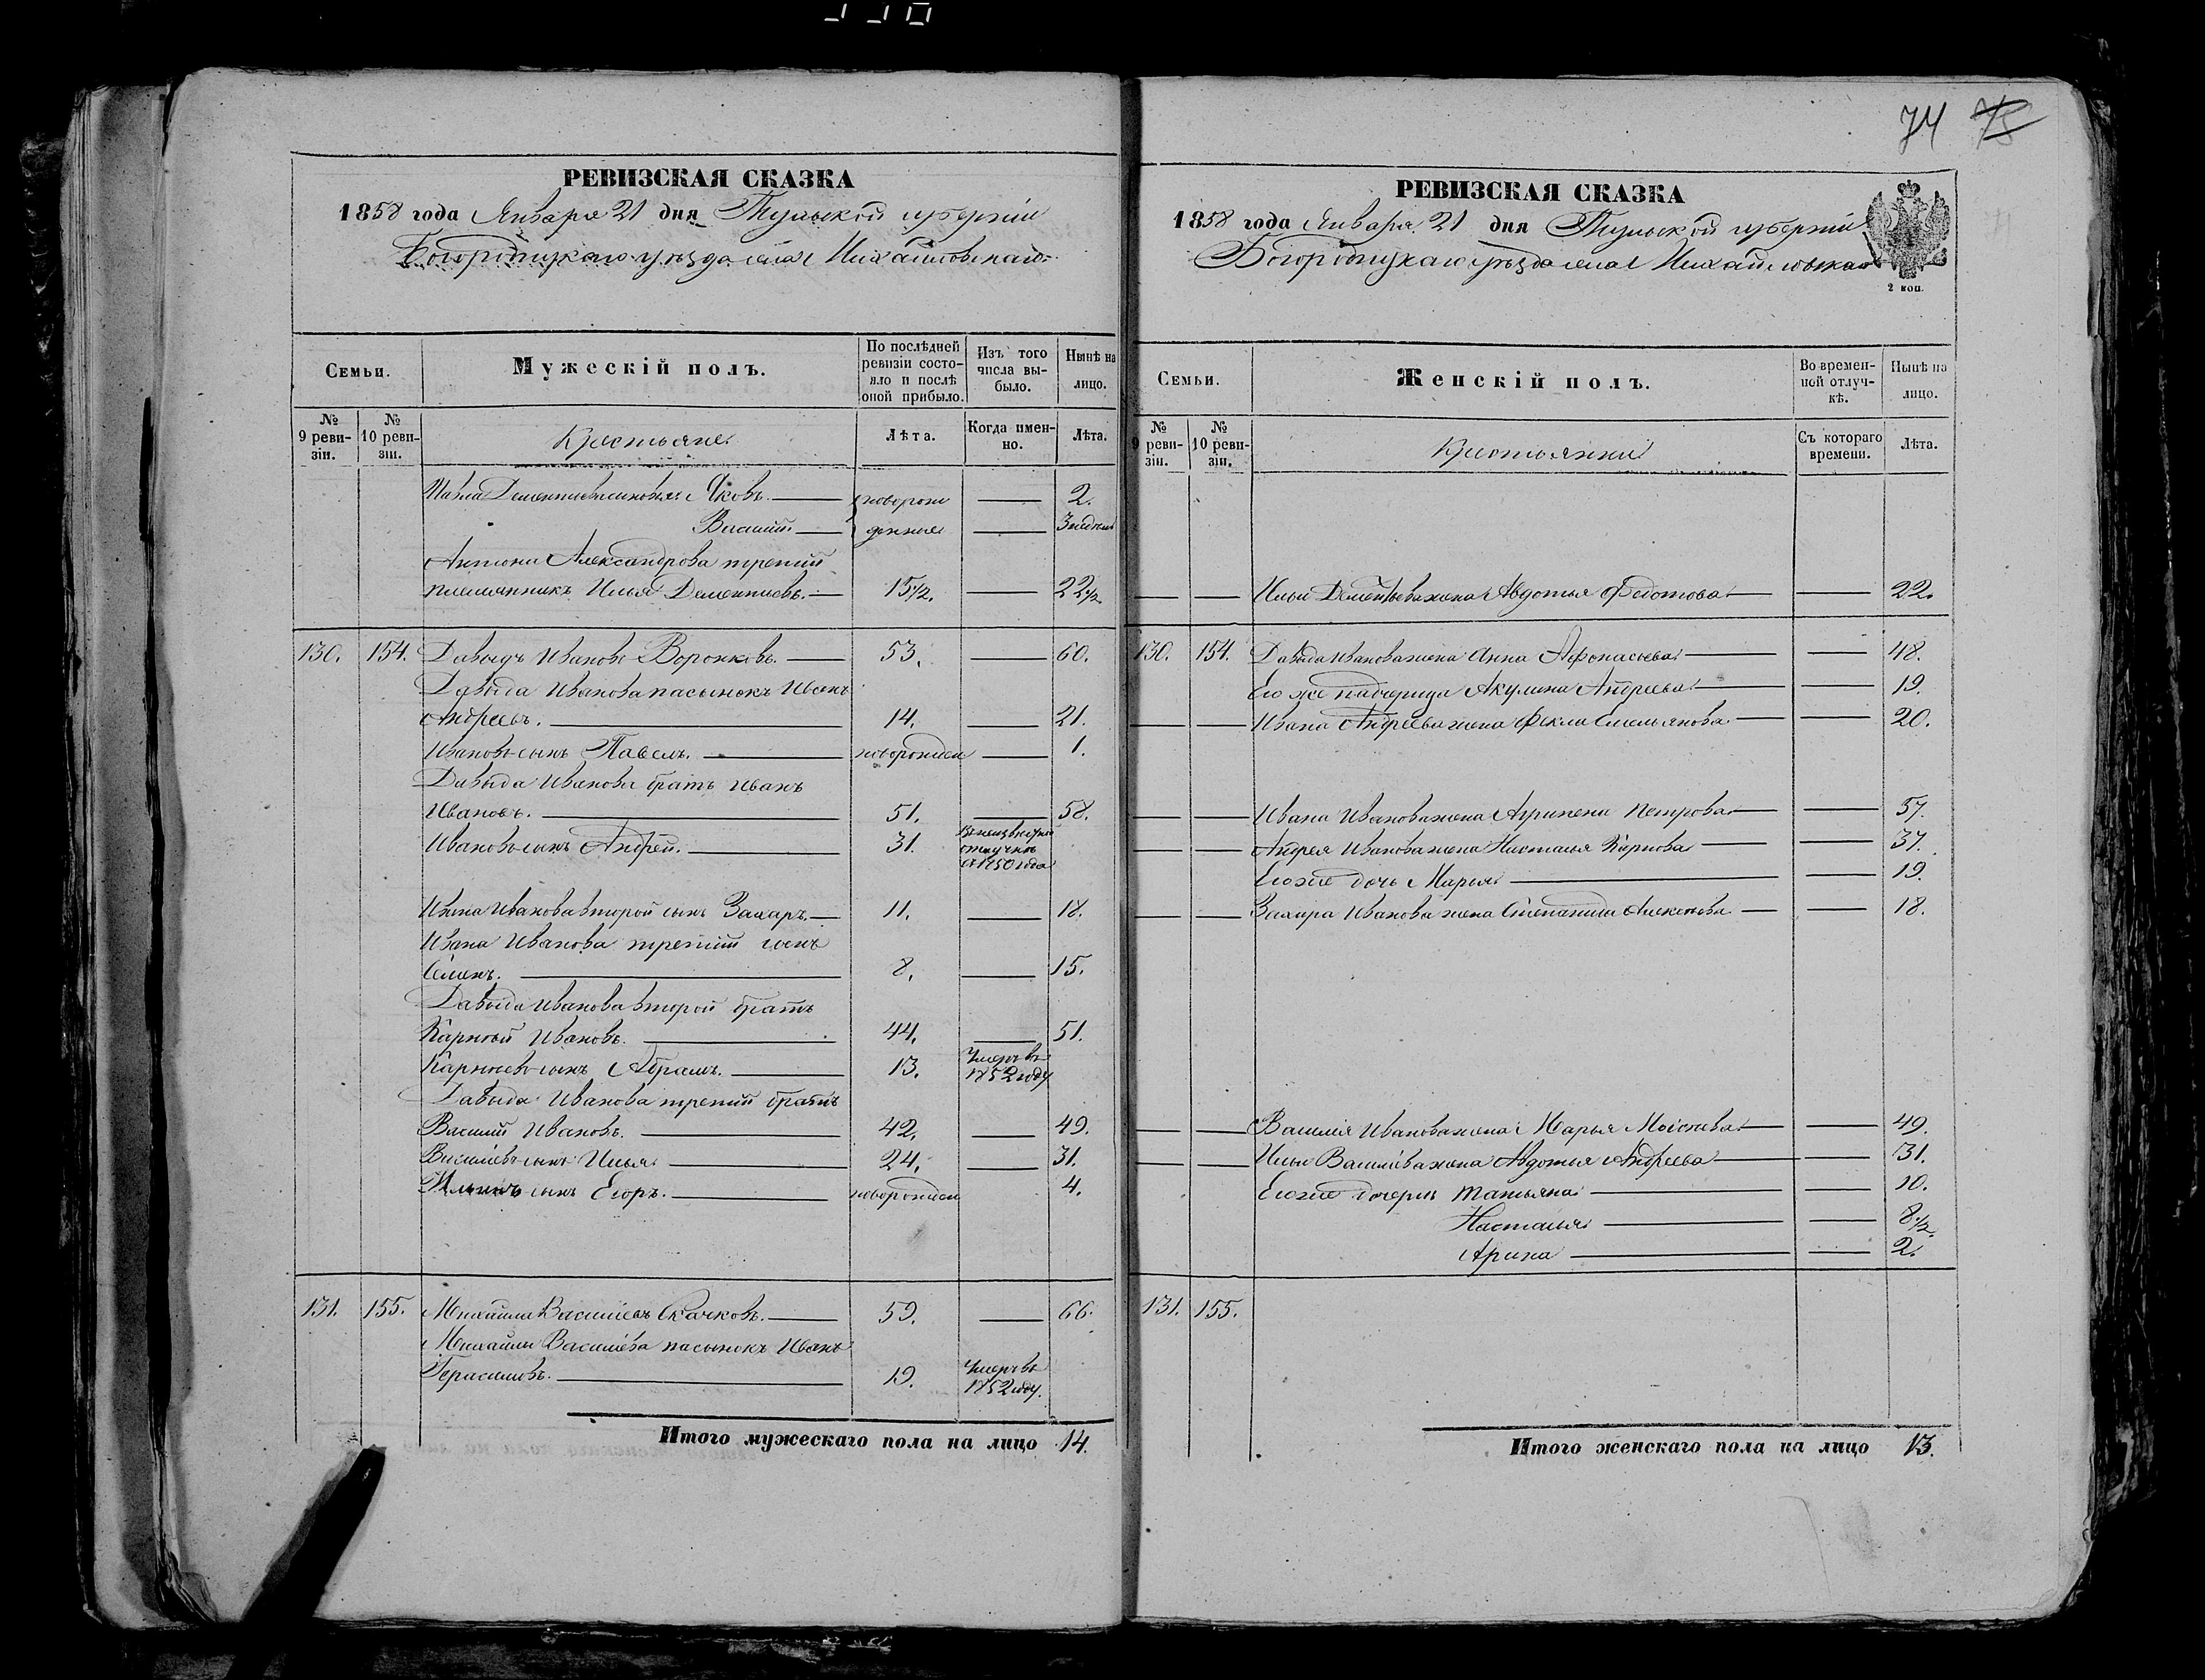 74 75
РЕВИЗСКАЯ СКАЗКА
1858 года Января 21 дня Тульской губернiи
Богородицкаго уѣзда села Михайловскаго
Семьи.
Мужескiй полъ.
По послѣдней ревизiи состо-
яло и послѣ
оной прибыло.
Изъ того
числа вы-
было.
Нынѣ на
лицо.
№
9 реви-
зiи.
№
10 реви-
зiи.
Крестьяне
Лѣта.
Когда имен-
но.
Лѣта.
Павла Дементьева сыновья: Яковъ. новорож 2.
Василий. денные 3 недель
Антона Александрова третiй
племянникъ Илья Дементьевъ. 15 1/2. 22 1/2.
130. 154. Давыдъ Ивановъ Воронковъ. 53. 60.
Давыда Иванова пасынокъ Иванъ
Андреевъ. 14. 21.
Ивановъ сынъ Павелъ. новорожден 1.
Давыда Иванова братъ Иванъ
Ивановъ. 51. 58.
Ивановъ сынъ Андрей. 31.
отлучке
съ 1850 года
Ивана Иванова второй сынъ Захаръ. 11. 18.
Ивана Иванова третiй сынъ
Семенъ. 8. 15.
Давыда Иванова второй братъ
Карпѣй Ивановъ. 44. 51.
Карпѣевъ сынъ Абрамъ. 13. Умеръ въ
1852 году
Давыда Иванова третiй братъ
Василий Ивановъ. 42. 49.
Васильевъ сынъ Илья. 24. 31.
Ильинъ сынъ Егоръ. новорожден 4.
131. 155. Михайла Васильевъ Скачковъ. 59. 66.
Михайлы Васильева пасынокъ Иванъ
Герасимовъ. 19. Умеръ въ
1852 году.
Итого мужескаго пола на лицо 14.
РЕВИЗСКАЯ СКАЗКА
1858 года Января 21 дня Тульской губернiи
Богородицкаго уѣзда села Михайловскаго
2 коп.
Семьи.
Женскiй полъ.
Во времен-
ной отлуч-
кѣ.
Нынѣ на
лицо.
№
9 реви-
зiи.
№
10 реви-
зiи.
Крестьянки
Съ котораго
времени.
Лѣта.
Ильи Дементьева жена Авдотья Федотова 22.
130. 154. Давыда Иванова жена Анна Афонасьева 48.
Его же падчерица Акулина Андреева 19.
Ивана Андреева жена Фекла Емельянова 20.
Ивана Иванова жена Агрипена Петрова 57.
Андрея Иванова жена Настасья Карпова 37.
Его же дочь Марья 19.
Захара Иванова жена Степанида Алексеева 18.
Василия Иванова жена Марья Моисеева 49.
Ильи Васильева жена Авдотья Андреева 31.
Его же дочери Татьяна 10.
Настасья 8 1/2.
Арина 2.
131. 155.
Итого женскаго пола на лицо 13.